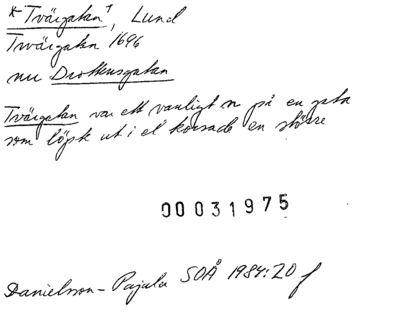 *Tvärgatan†, Lund
Twärgatan 1696
nu Drottensgatan
Tvärgatan var ett vanligt n på en gata
som löpte ut i el korsade en större
00031975
Danielsson-Pajula SOÅ 1984:20 f